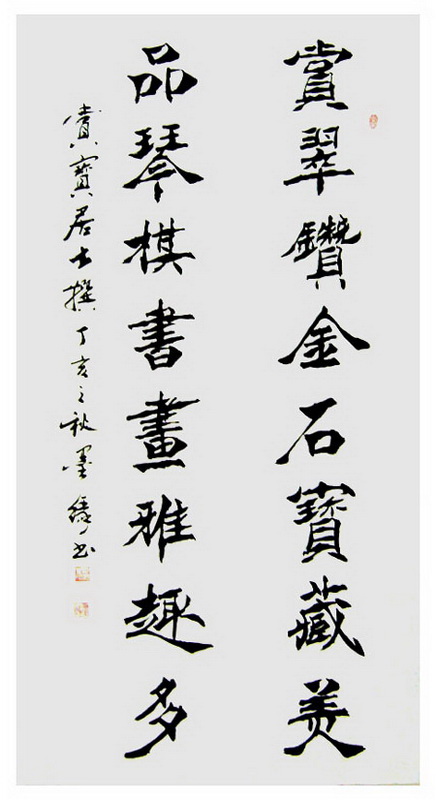 賞翠鑽金石寶藏美
品琴棋書畫雅趣多
賞寶居士撰丁亥之秋墨緣书